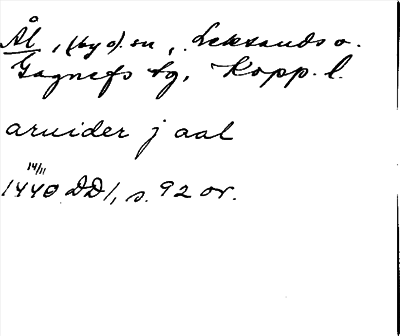 Ål, (by o) sn, Leksands o.
Gagnefs tg, Kopp. l.
aruider j aal
14/11
1440 DD1, s. 92 or.